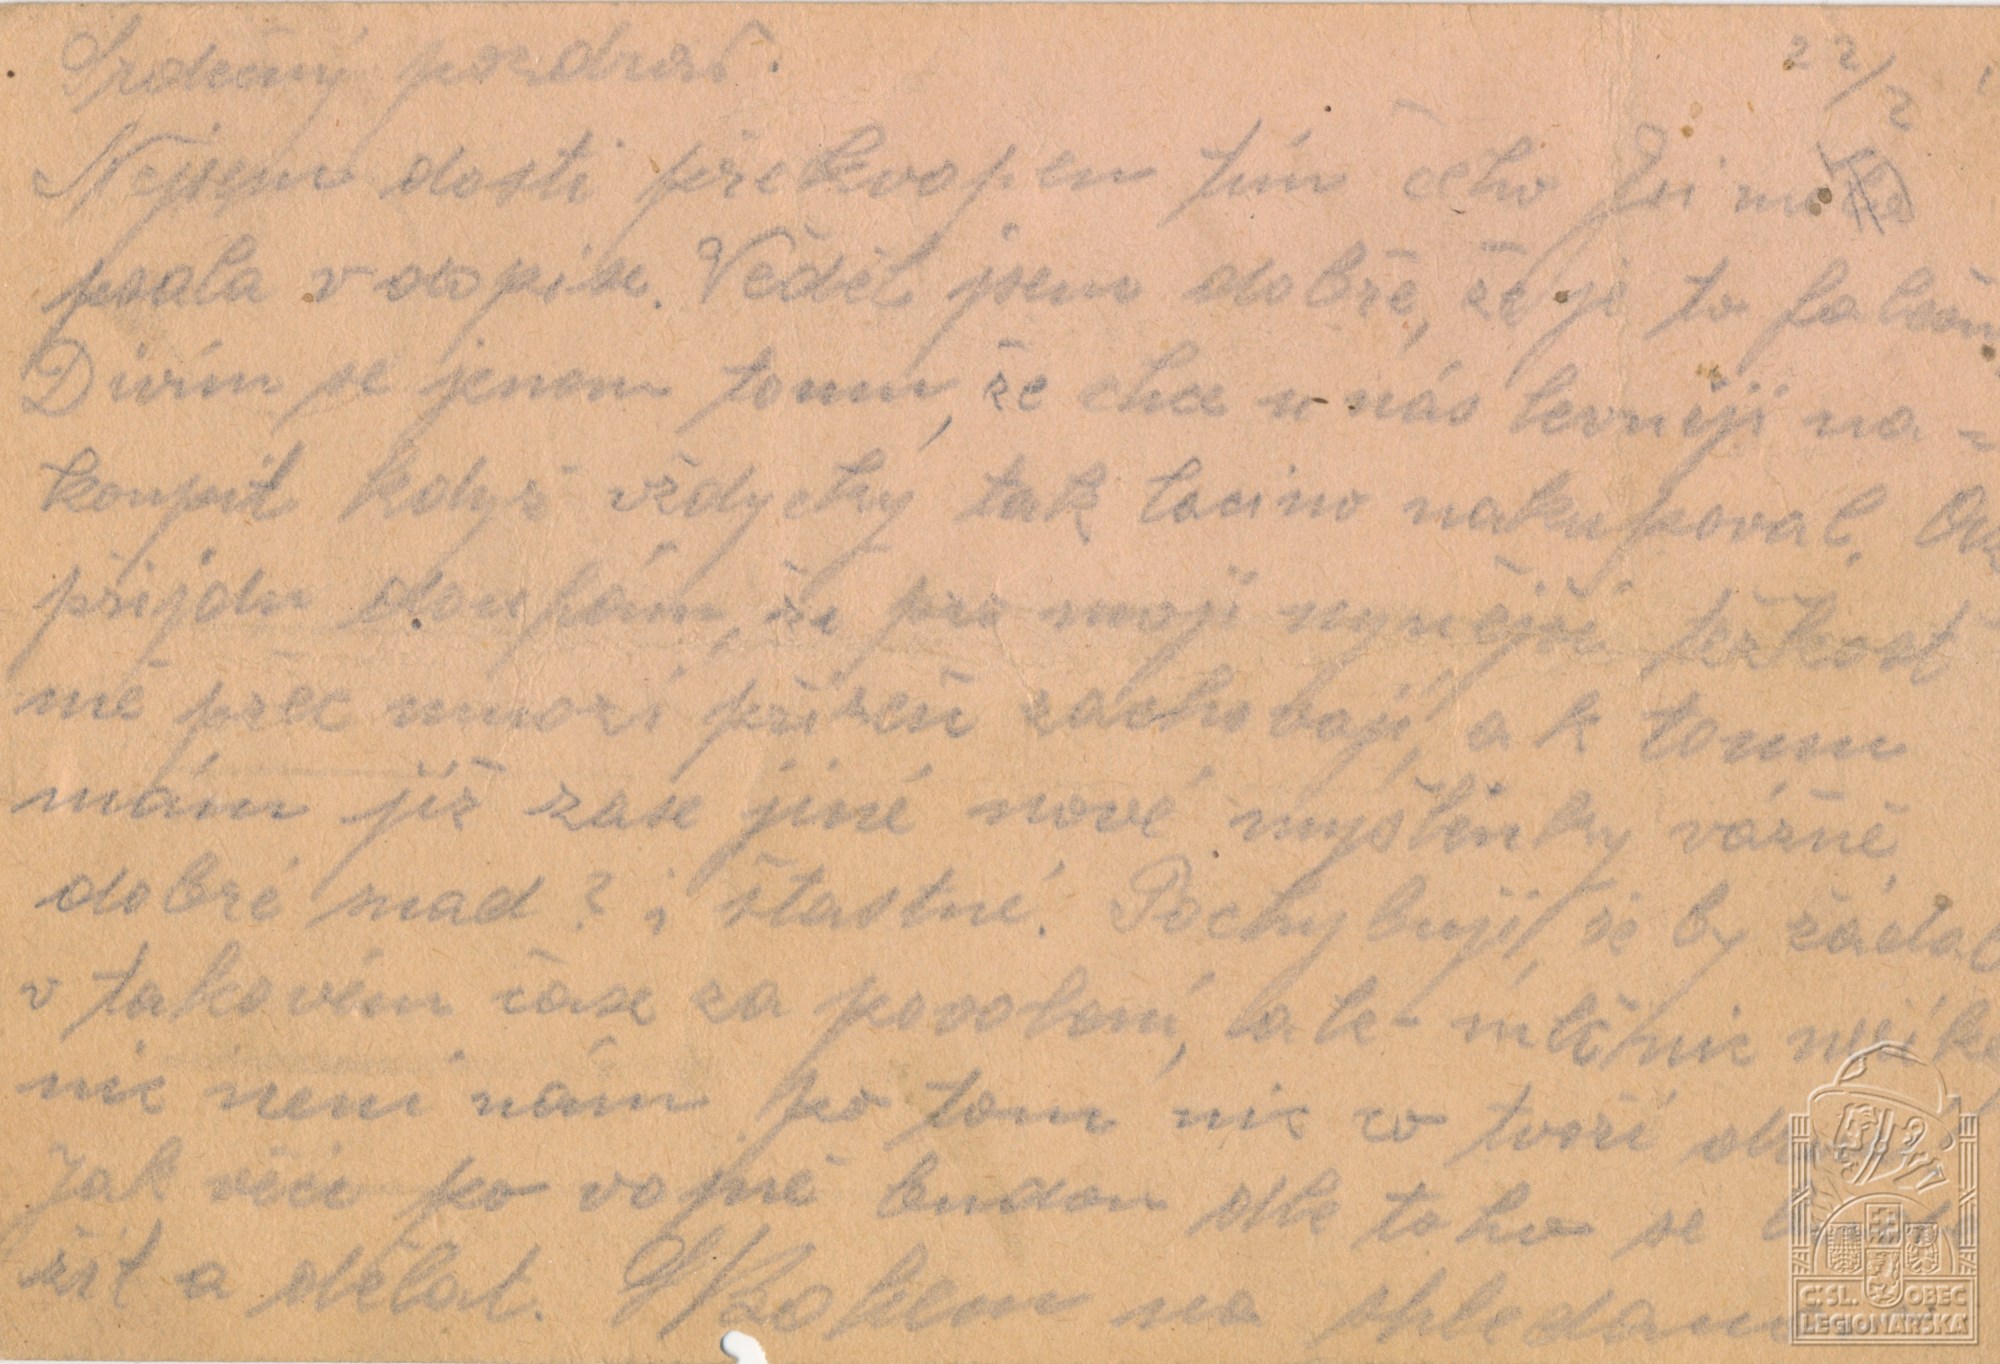 Srdečný pozdrav. 22/2
Nejsem dosti překvapen tím čeho Jsi mně
psala v dopise. Věděl jsem dobře, že je to
Divím se jenom tomu, že chce u nás levněji na-
koupit když vždycky tak lacino nakupoval.
přijdu doufám, že pro moji nynější těžkost
mě přec mnozí přízeň zachovají, a k tomu
mám již zase jiné nové myšlénky vážně
dobré snad? i šťastné. Pochybuji, že by žádal
v takovém čase za povolení, ale mlč nic
nic není nám po tom nic co tvoří
Jak věci po vojně budou dle toho se
žít a dělat. S Bohem na shledanou
Č:SL. OBEC
LEGIONÁŘSKÁ